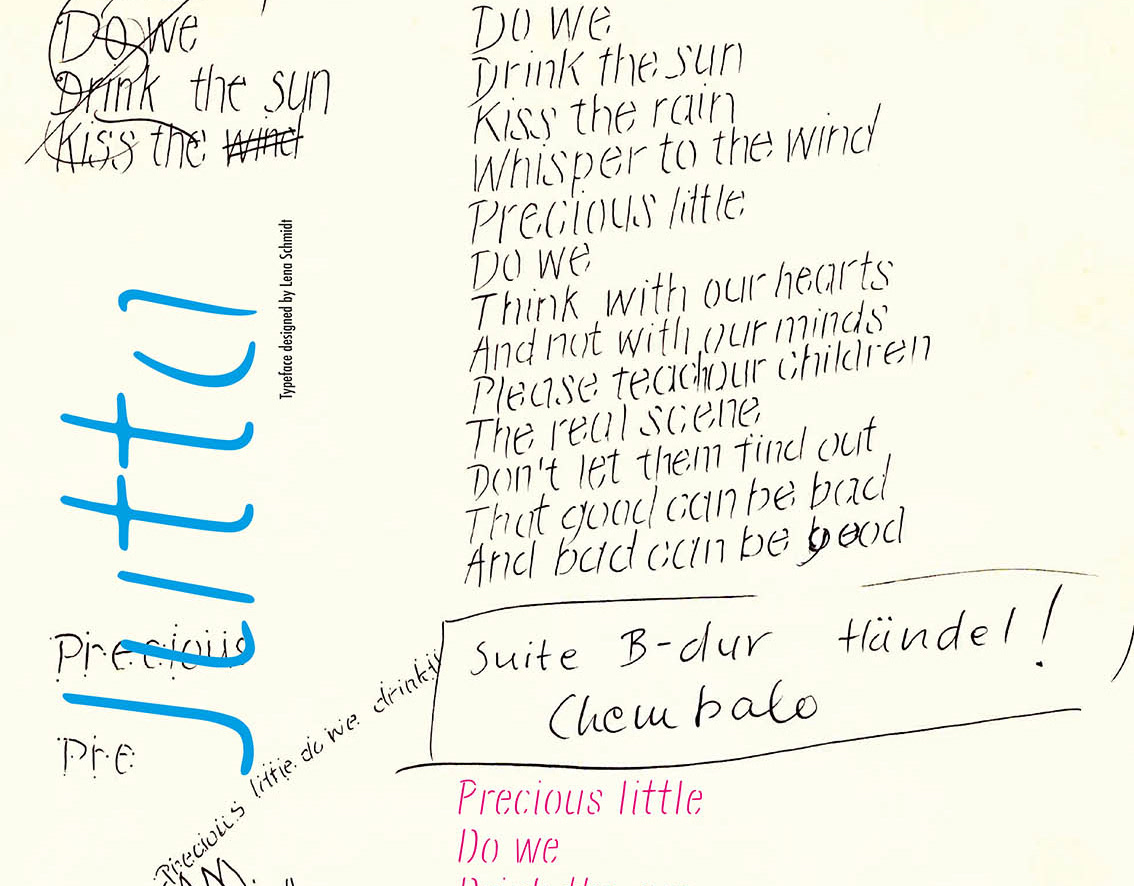 Do We
Drink the sun
Kiss the wind
Do we
Drink the sun
Kiss the rain
Whisper to the wind
Precious little
Do we
Think with our hearts
And not with our minds
Please teach our children
The real scene
Don't let them find out
That good can be bad
And bad can be good
Typeface designed by Lena Schmidt
Jutta
Precious
Pre
Precious little do we drink
Suite B-dur Händel!
Chembalo
Precious little
Do we